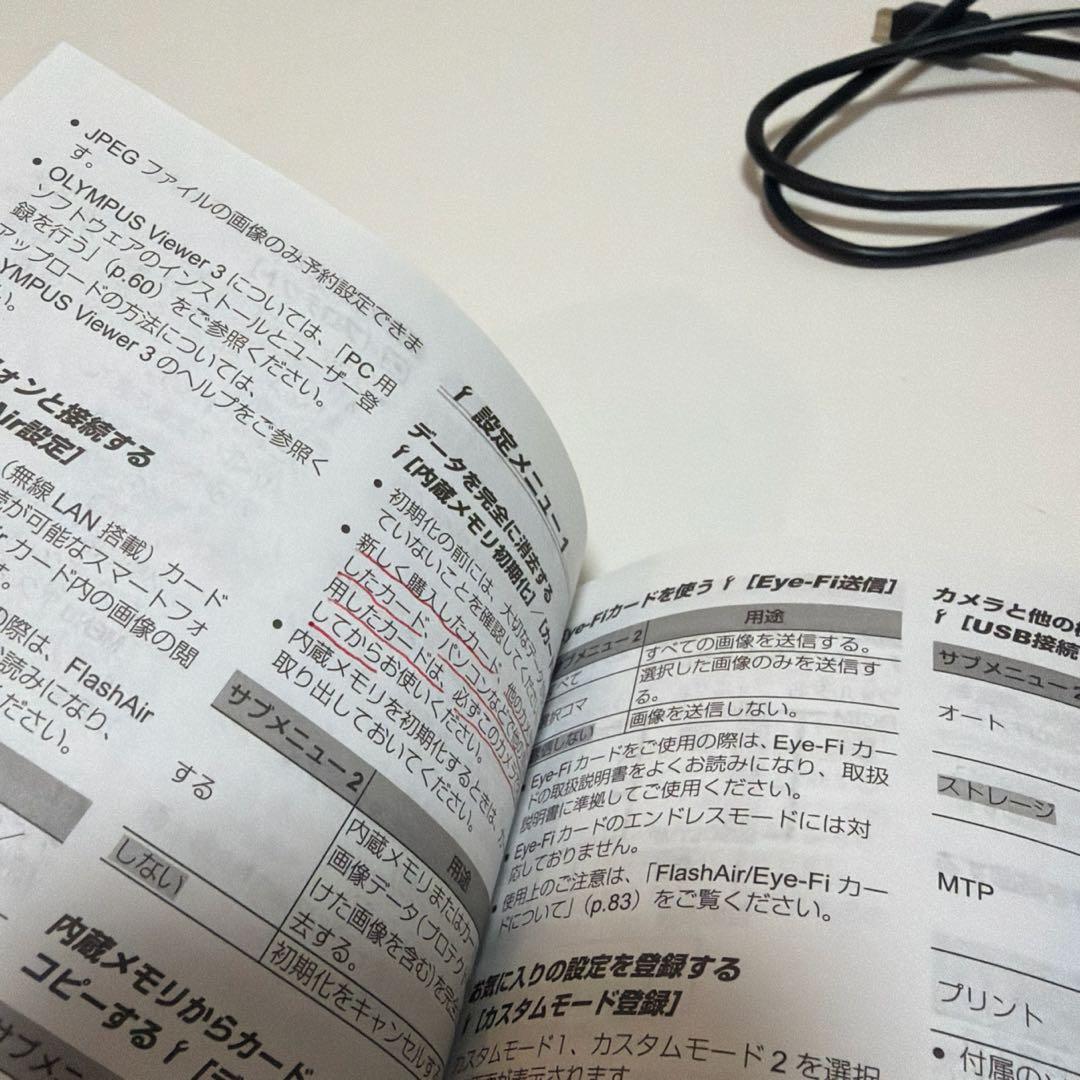 • JPEG ファイルの画像のみ予約設定できま
す。
• OLYMPUS Viewer 3 については、「PC 用
ソフトウェアのインストールとユーザー登
録を行う」(p.60) をご参照ください。
アップロードの方法については、
YMPUS Viewer 3 のヘルプをご参照く
い。
ォンと接続する
Air設定]
(無線 LAN 搭載) カード
が可能なスマートフォ
カード内の画像の閲
す。
の際は、FlashAir
お読みになり、
ださい。
設定メニュー 1
データを完全に消去する
[内蔵メモリ初期化] /
• 初期化の前には、大切なデータ
ていないことを確認してくださ
• 新しく購入したカード、他のカメ
したカード、パソコンなどで
用したカードは、必ずこのカメラ
してからお使いください。
• 内蔵メモリを初期化するときは、
取り出しておいてください。
サブメニュー 2
用途
する
内蔵メモリまたはカー
画像データ (プロテク
けた画像を含む) を完全
去する。
しない
初期化をキャンセルす
内蔵メモリからカード
コピーする
サブメニ
Eye-Fiカードを使う [Eye-Fi送信]
ブメニュー 2
用途
べて
すべての画像を送信する。
択コマ
選択した画像のみを送信す
る。
送信しない
画像を送信しない。
Eye-Fi カードをご使用の際は、Eye-Fi カー
ドの取扱説明書をよくお読みになり、取扱
説明書に準拠してご使用ください。
• Eye-Fi カードのエンドレスモードには対
応しておりません。
• 使用上のご注意は、「FlashAir/Eye-Fi カー
ドについて」(p.83) をご覧ください。
お気に入りの設定を登録する
[カスタムモード登録]
カスタムモード1、カスタムモード 2 を選択
画面が表示されます
カメラと他の
[USB接続
サブメニュー 2
オート
ストレージ
MTP
プリント
• 付属の